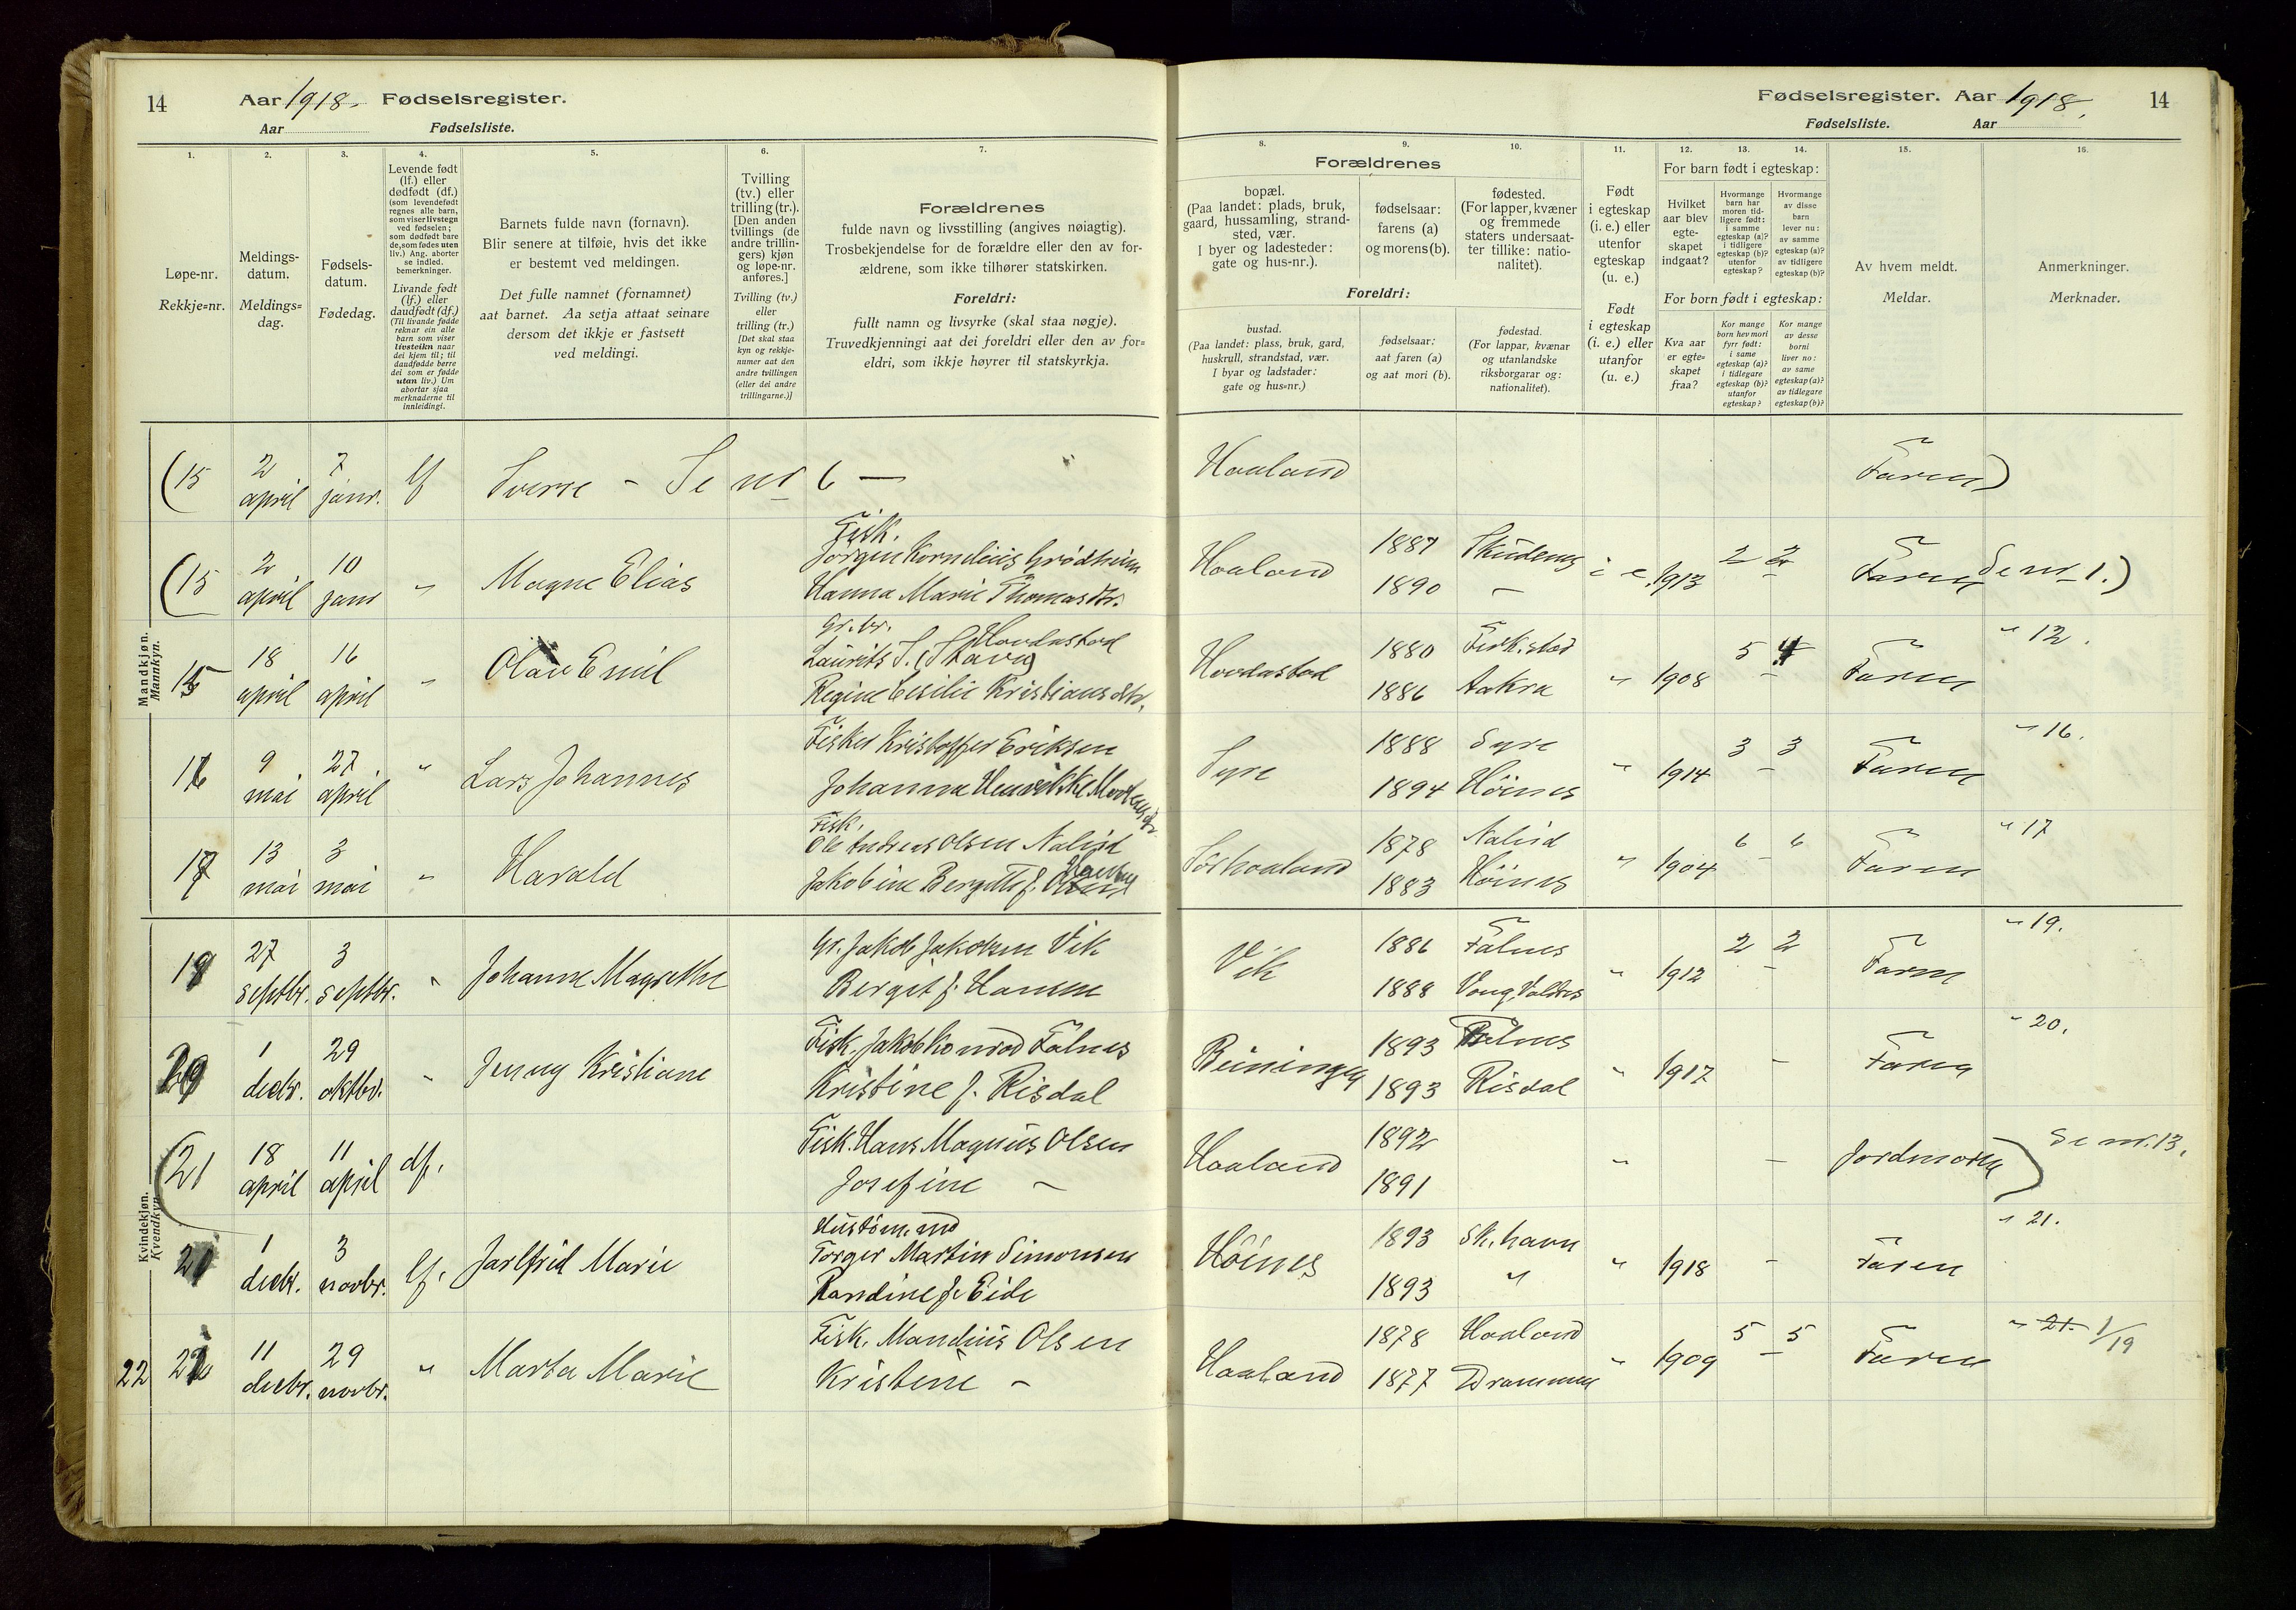 14
Aar 1918. Fødselsregister.
Aar
Fødselsliste.
Fødselsregister. Aar 1918.
14
Fødselsliste.
Aar
1.
2.
3.
4.
5.
6.
7.
8.
9.
10.
11.
12.
13.
14.
15.
16.
Løpe-nr.
Rekkje=nr.
Meldings-
datum.
Meldings=
dag.
Fødsels-
datum.
Fødedag.
Levende født
(lf.) eller
dødfødt (df.)
(som levendefødt
regnes alle barn,
som viser livstegn
ved fødselen;
som dødfødt bare
de, som fødes uten
liv.) Ang. aborter
se indled.
bemerkninger.
Livande født
(lf.) eller
daudfødt (df.)
(Til livande fødde
reknar ein alle
barn som viser
livsteikn naar
dei kjem til; til
daudfødde berre
dei som er fødde
utan liv.) Um
abortar sjaa
merknaderne til
innleidingi.
Barnets fulde navn (fornavn).
Blir senere at tilføie, hvis det ikke
er bestemt ved meldingen.
Det fulle namnet (fornamnet)
aat barnet. Aa setja attaat seinare
dersom det ikkje er fastsett
ved meldingi.
Tvilling
(tv.) eller
trilling (tr.).
[Den anden
tvillings (de
andre trillin-
gers) kjøn
og løpe-nr.
anføres.]
Tvilling (tv.)
eller
trilling (tr.)
[Det skal staa
kyn og rekkje-
numer aat den
andre tvillingen
(eller dei andre
trillingarne.)]
Forældrenes
fulde navn og livsstilling (angives nøiagtig).
Trosbekjendelse for de forældre eller den av for-
ældrene, som ikke tilhører statskirken.
Foreldri:
fullt namn og livsyrke (skal staa nøgje).
Truvedkjenningi aat dei foreldri eller den av for=
eldri, som ikkje høyrer til statskyrkja.
Forældrenes
bopæl.
(Paa landet: plads, bruk,
gaard, hussamling, strand-
sted, vær.
I byer og ladesteder:
gate og hus-nr.).
fødselsaar:
farens (a)
og morens (b).
fødested.
(For lapper, kvæner
og fremmede
staters undersaat-
ter tillike: natio-
nalitet).
Foreldri:
bustad.
(Paa landet: plass, bruk, gard,
huskrull, strandstad, vær.
I byar og ladstader:
gate og hus=nr.)
fødselsaar:
aat faren (a)
og aat mori (b).
fødestad.
(For lappar, kvænar
og utanlandske
riksborgarar og:
nationalitet).
Født
i egteskap
(i. e.) eller
utenfor
egteskap
(u. e.)
Født
i egteskap
(i. e.) eller
utanfor
(u. e.)
For barn født i egteskap:
Hvilket
aar blev
egte-
skapet
indgaat?
Hvormange
barn har
moren tid-
ligere født:
i samme
egteskap (a)?
i tidligere
egteskap (b)?
utenfor
egteskap?
Hvormange
av disse
barn
lever nu:
av samme
egteskap (a)?
av tidligere
egteskap (b)?
For born født i egteskap:
Kva aar
er egte=
skapet
fraa?
Kor mange
born hev mori
fyrr født:
i same
egteskap (a)?
i tidlegare
egteskap (b)?
utanfor
egteskap?
Kor mange
av desse
borni
liver no:
av same
egteskap (a)?
av tidlegare
egteskap (b)?
Av hvem meldt.
Meldar.
Anmerkninger.
Merknader.
Mandkjøn.
Mannkyn.
(15 2 april 7 janr. lf Sverre - Se nr 6 — Haaland Faren)
(15 2 april 10 janr " Magne Elias
Fisk.
Jørgen Kornelius Grødheim
Hanna Marie Thomasdtr.
Haaland 1887 1890 Skudenes - i e. 1913 2 - 2 Faren Se nr 1.)
15 18 april 16 april " Olav Emil
Gr. br.
Laurits S. (Stava) Hovdastad
Regine Cecilie Kristiansdtr.
Hovdastad 1880 1886 Aakra " 1908 5 - 4 Faren " 12.
16 9 mai 27 april " Lars Johannes
Fisker Kristoffer Eriksen
Johanna Henrikke
Syre 1888 1894 Syre Høines " 1914 3 - 3 Faren " 16.
17 13 mai 3 mai " Harald
Fisk.
Ole Andreas Olsen
Jakobine Bergitte f.
Sørhaaland 1878 1883 Høines " 1904 6 - 6 Faren " 17
Kvindekjøn.
Kvendkyn.
19 27 septbr. 3 septbr. " Johanne Magrethe
Gr. Jakob Jakobsen Vik
Bergit f. Hansen
Vik 1886 1888 Falnes Vang, Valdres " 1912 2 - 2 Faren " 19.
20 1 decbr. 29 oktbr. " Jenny Kristiane
Fisk. Jakob Konrad Falnes
Kristine f. Risdal
Beiningen 1893 1893 Falnes Risdal " 1917 - Faren " 20.
(21 18 april 11 april df.
Fisk. Hans Magnus Olsen
Josefine -
Haaland 1892 1891 " - Jordmoren) Se nr. 13.
20 1 decbr. 3 novbr. lf. Jarlfrid Marie
Torger Martin Simonsen
Randine f. Eide
Høines 1893 1893 Sk.havn " " 1918 - Faren " 21.
22 11 decbr. 29 novbr. " Marta Marie
Fisk. Mandius Olsen
Kristine -
Haaland 1878 1877 Haaland Drammen " 1909 5 - 5 Faren " 21. 1/19